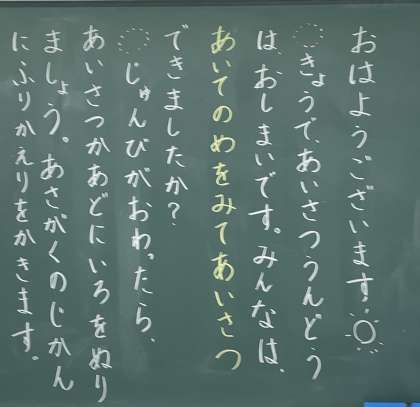 おはようございます。
きょうで、あいさつうんどう
は、おしまいです。みんなは、
あいてのめをみてあいさつ
できましたか？
じゅんびがおわったら、
あいさつかあどにいろをぬり
ましょう。あさがくのじかん
にふりかえりをかきます。